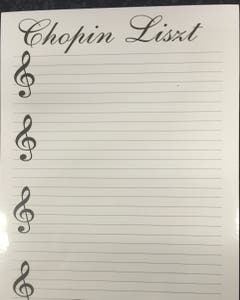 Chopin Liszt